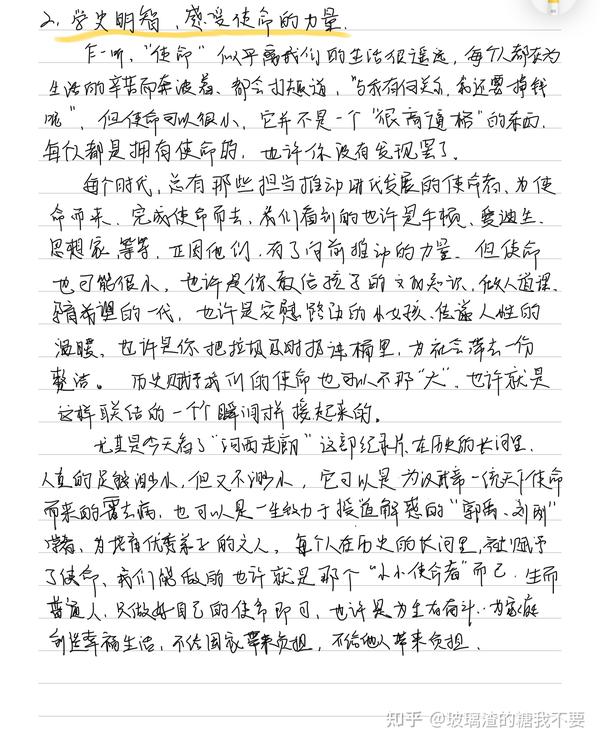 2、学史明智,感受使命的力量.
乍一听,“使命”似乎离我们的生活很遥远,每个人都在为
生活的辛苦而奔波着、都会打趣道,“与我有何关系,我还要挣钱
呢”,但使命可以很小,它并不是一个“很高逼格”的东西,
每个人都是拥有使命的,也许你没有发现罢了。
每个时代,总有那些担当推动时代发展的使命者、为使
命而来、完成使命而去,我们看到的也许是牛顿、爱迪生、
思想家,等等,正因他们,有了向前推动的力量、但使命
也可能很小,也许是你教给孩子的文明知识,做人道理、
孕育希望的一代,也许是安慰路边的小女孩、传递人性的
温暖、也许是你把垃圾及时扔进桶里,为社会带去一份
整洁。历史赋予我们的使命也可以不那“大”、也许就是
这样联结的一个个瞬间拼接起来的。
尤其是今天看了“河西走廊”这部纪录片、在历史的长河里,
人真的足够渺小,但又不渺小,它可以是为汉武帝一统天下使命
而来的霍去病,也可以是一生致力于授道解惑的“郭禹、刘昞”
学者、为培育优秀弟子的文人,每个人在历史的长河里,被赋予
了使命、我们能做的也许就是那个“小小使命者”而已.生而
普通人、只做好自己的使命即可,也许是为生存奋斗、为家庭
创造幸福生活,不给国家带来负担,不给他人带来负担.
知乎 @玻璃渣的糖我不要